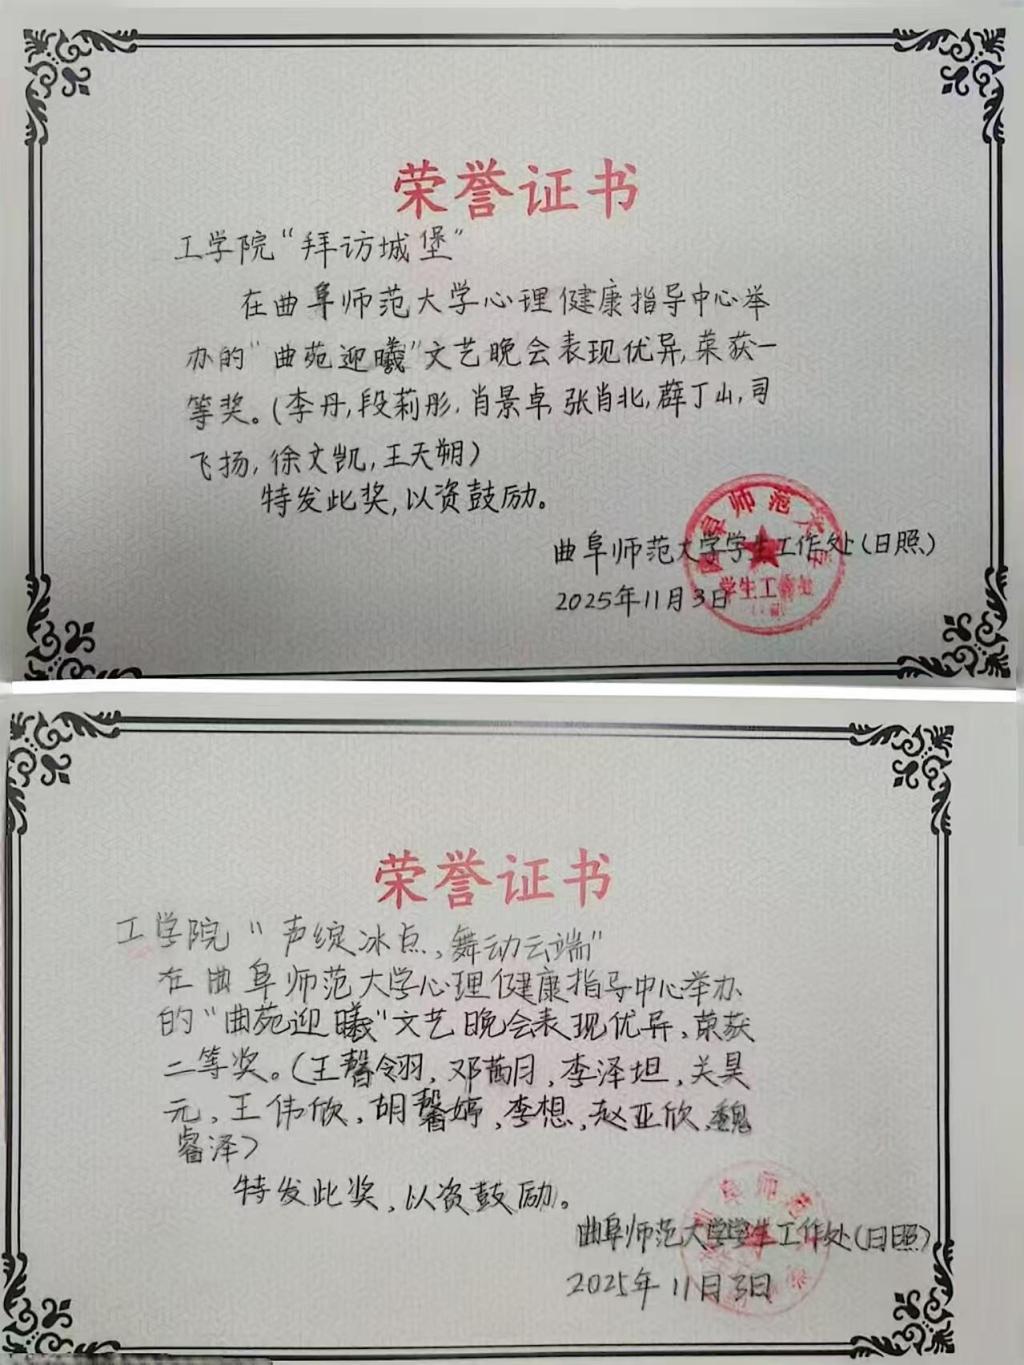 荣誉证书
工学院“拜访城堡”
在曲阜师范大学心理健康指导中心举
办的“曲苑迎曦”文艺晚会表现优异,荣获一
等奖。(李丹,段莉彤,肖景卓,张肖北,薛丁山,司
飞扬,徐文凯,王天朔)
特发此奖,以资鼓励。
曲阜师范大学学生工作处(日照)
2025年11月3日
曲阜师范大学
学生工作处
荣誉证书
工学院“声绽冰点,舞动云端”
在曲阜师范大学心理健康指导中心举办
的“曲苑迎曦”文艺晚会表现优异,荣获
二等奖。(王馨翎,邓茜月,李泽坦,关昊
元,王伟欣,胡馨婷,李想,赵亚欣,魏
睿泽)
特发此奖,以资鼓励。
曲阜师范大学学生工作处(日照)
2025年11月3日